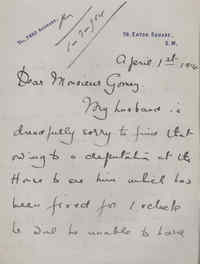 75, Eaton Square,
S.W.
April 1st 1914
Dear Monsieur
My husband is
dreadfully sorry to find that
owing to a deputation at the
House to see him which has
been fixed for 1 o'clock
he will be unable to have